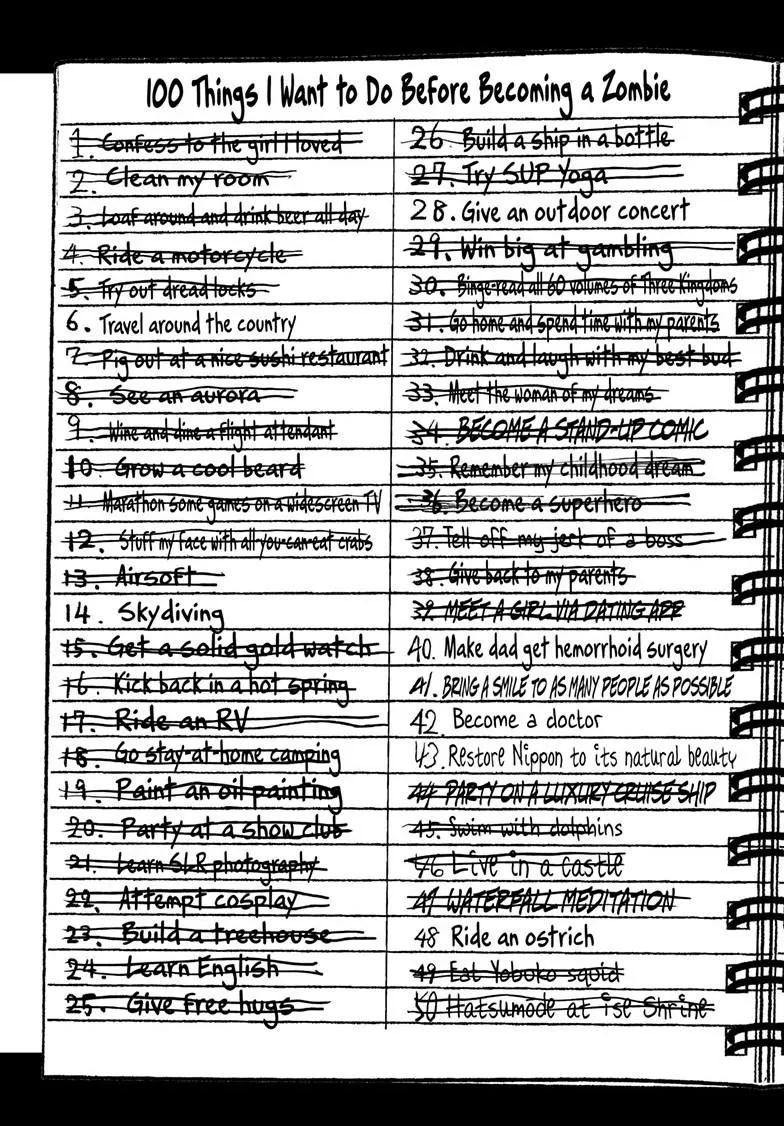 100 Things I Want to Do Before Becoming a Zombie
1. Confess to the girl I loved
2. Clean my room
3. Loaf around and drink beer all day
4. Ride a motorcycle
5. Try out dreadlocks
6. Travel around the country
7. Pig out at a nice sushi restaurant
8. See an aurora
9. Wine and dine a flight attendant
10. Grow a cool beard
11. Marathon some games on a widescreen TV
12. Stuff my face with all you-can-eat crabs
13. Airsoft
14. Skydiving
15. Get a solid gold watch
16. Kick back in a hot spring
17. Ride an RV
18. Go stay-at-home camping
19. Paint an oil painting
20. Party at a show club
21. Learn SLR photography
22. Attempt cosplay
23. Build a treehouse
24. Learn English
25. Give free hugs
26. Build a ship in a bottle
27. Try SUP Yoga
28. Give an outdoor concert
29. Win big at gambling
30. Binge-read all 60 volumes of Three Kingdoms
31. Go home and spend time with my parents
32. Drink and laugh with my best bud
33. Meet the woman of my dreams
34. BECOME A STAND-UP COMIC
35. Remember my childhood dream
36. Become a superhero
37. Tell off my jerk of a boss
38. Give back to my parents
39. MEET A GIRL VIA DATING APP
40. Make dad get hemorrhoid surgery
41. BRING A SMILE TO AS MANY PEOPLE AS POSSIBLE
42. Become a doctor
43. Restore Nippon to its natural beauty
44 PARTY ON A LUXURY CRUISE SHIP
45. Swim with dolphins
46 Live in a castle
47 WATERFALL MEDITATION
48 Ride an ostrich
49 Eat Yobuko squid
50 Hatsumōde at ise Shrine